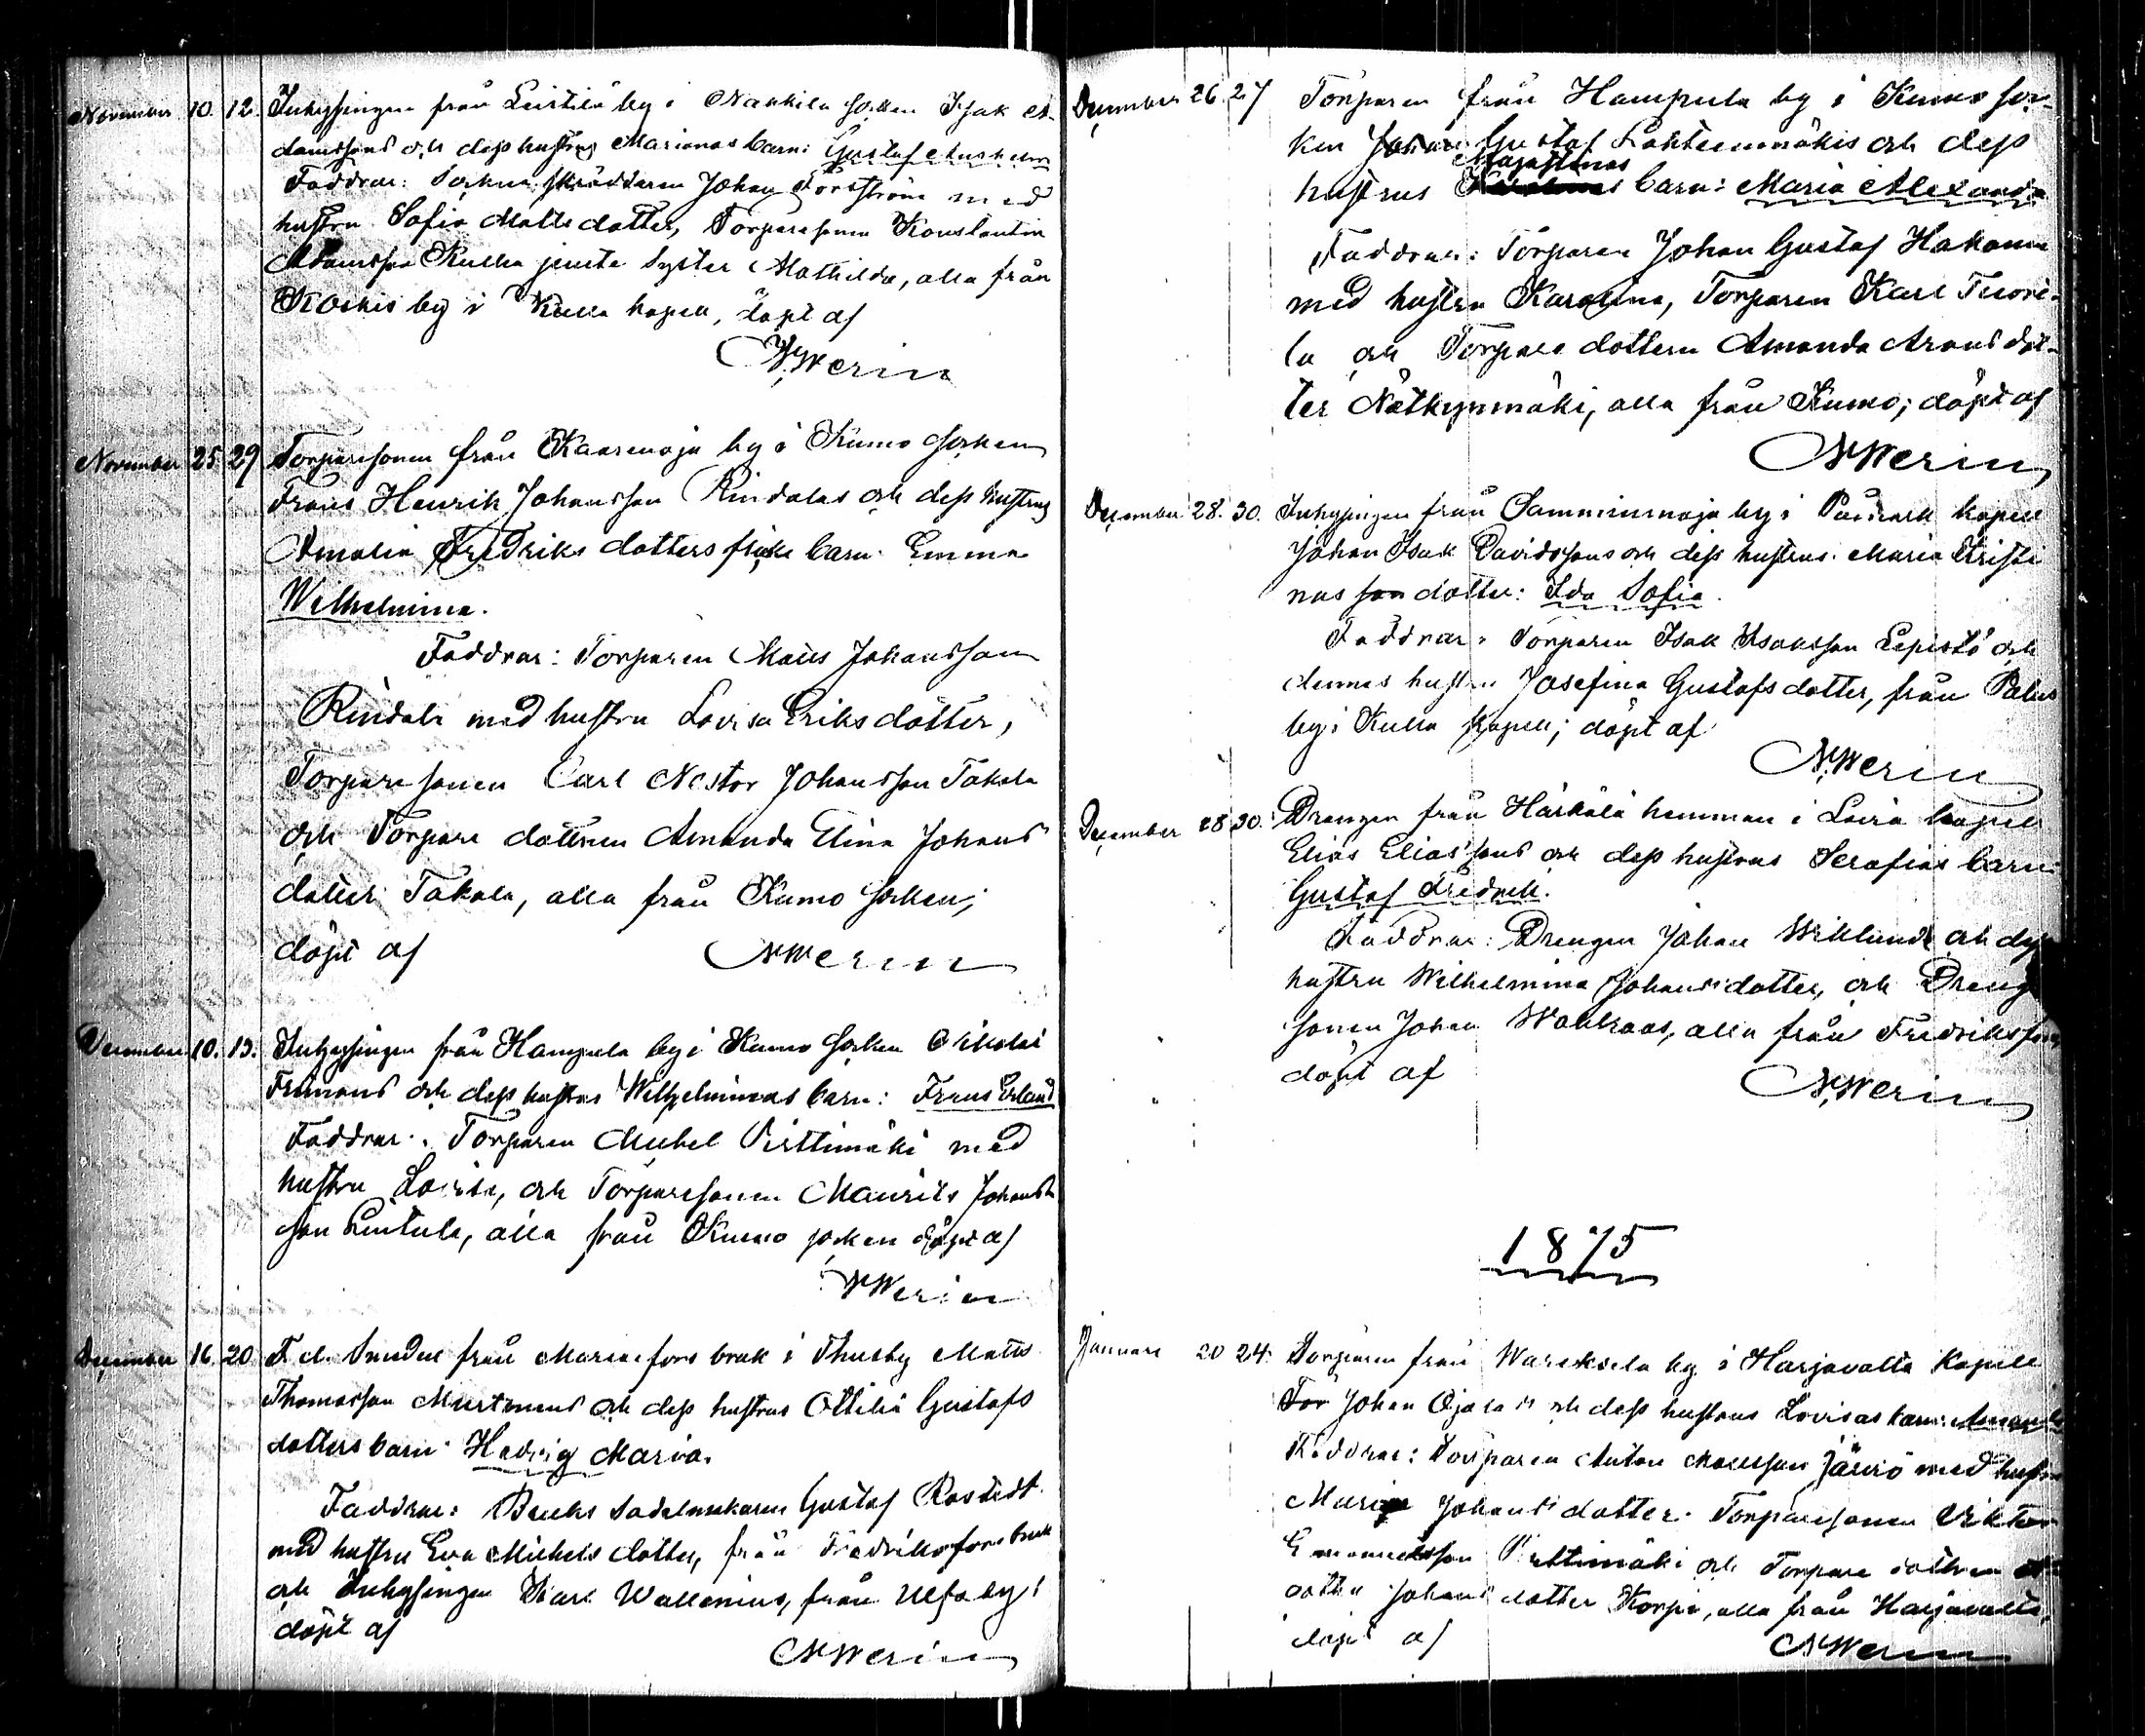 November 10. 12. Inhysingen från Leistilä by i Nakkila socken Isak A-
damssons och dess hustrus Marianas barn: Gustaf Anshelm
Faddrar: Sockneskräddaren Johan Forsström med
hustru Sofia Mattsdotter, Torparesonen Konstantin
Adamsson Kulla jemte Syster Mathilda, alla från
Koskis by i Kulla kapell, döpt af
N Werin
November 25 29 Torparesonen från Kaarenoja by i Kumo socken
Frans Henrik Johansson Rindalas och dess hustrus
Amalia Fredriks dotters barn: Emma
Wilhelmina.
Faddrar: Torparen Matts Johansson
Rindala med hustru Lovisa Eriks dotter,
Torpare sonen Carl Nestor Johansson Takala
och Torpare dottren Amanda Elina Johans
dotter Takala, alla från Kumo socken;
döpt af N Werin
December 10. 13. Inhysingen från Hampula by i Kumo socken Nikolai
Frimans och dess hustrus Wilhelminas barn: Frans Erland
Faddrar: Torparen Mickel Pirttimäki med
hustru Lovisa, och Torparesonen Maurits Johans
son Lintula, alla från Kumo socken döpt af
N Werin
December 16. 20 F.d. Smeden från Mariefors bruk i Thusby Matts
Thomasson Murtmens och dess hustrus Ottilia Gustafs
dotters barn: Hedvig Maria.
Faddrar: Bruks Sadelmakaren Gustaf Rostedt
med hustru Eva Mickels dotter, från Fredriksfors bruk
och Inhysingen Karl Wallenius, från Ulfsby;
döpt af
N Werin
December 26. 27 Torparen från Hampula by i Kumo soc-
ken Johan Gustaf Lähteenmäkis och dess
hustrus Majastinas barn: Maria Alexandra
Faddrar: Torparen Johan Gustaf Hakanen
med hustru Karolina, Torparen Karl Tuori-
la och Torpare dottern Amanda Arons dot-
ter Nätkynmäki, alla från Kumo; döpt af
N Werin
December 28. 30. Inhysingen från Samminmaja by i Påmark kapell
Johan Isak Davidssons och dess hustrus Maria Kristi
nas son dotter: Ida Sofia.
Faddrar: Torparen Isak Isaksson Lepistö och
dennes hustru Josefina Gustafs dotter, från Palus
by i Kulla kapell; döpt af
N Werin
December 28 30. Drengen från Härkälä hemman i Lavia kapell
Elias Eliassons och dess hustrus Serafias barn:
Gustaf Fredrik.
Faddrar: Drengen Johan Wiklund och dess
hustru Wilhelmina Johansdotter, och Dreng
sonen Johan Wahlroos, alla från Fredriksfors
döpt af N Werin
1875
Januari 20 24. Torparen från Wareksela by i Harjavalta Kapell
Tor Johan Ojalas och dess hustrus Lovisas barn: Amanda
Faddrar: Torparen Anton Jäniö med hustru
Maria Johans dotter. Torparesonen Viktor
Emanuelsson Pirttimäki och Torpare dottren
Johans dotter Korpi, alla från Harjavalta,
döpt af
N Werin